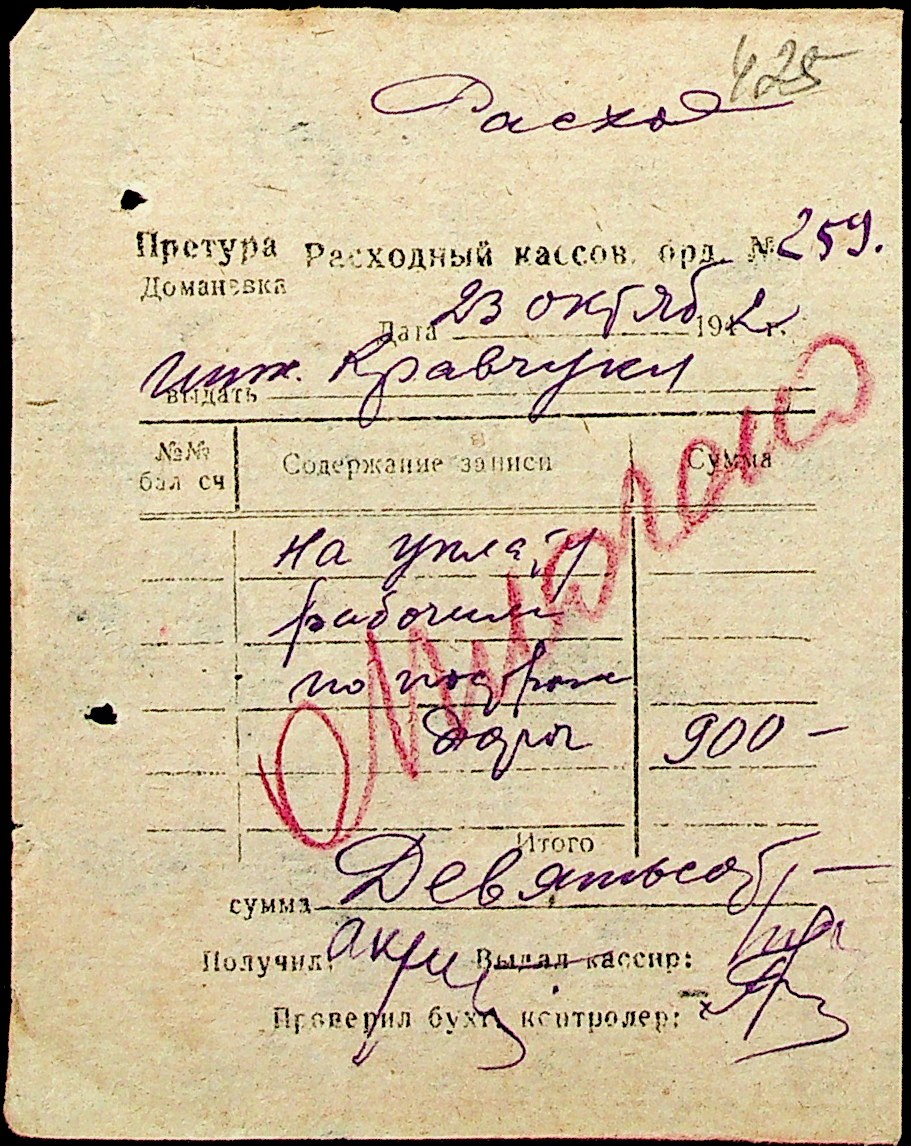 425
Расход
Претура Расходный кассов. орд. № 259.
Домановка
Дата 23 октяб 1942 г.
инж. Кравчуки
выдать
№№ бал сч Содержание записи Сумма
на уплату
рабочим
по
дорог 900 —
Итого
сумма Девятьсот —
Получил: Выдал кассир:
Проверил бухг. контролер:
Оплачено